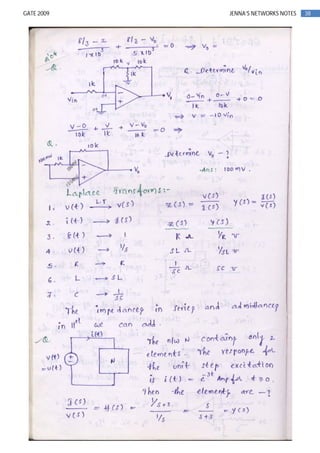 GATE 2009
JENNA'S NETWORKS NOTES 38
1k
10k
10k
1k
Vin
Vo
Q. Determine Vo/Vin
0-Vin / 1k + 0-V / 10k + 0 = 0
⇒ V = -10Vin
V-0 / 10k + V / 1k + V-Vo / 10k = 0 ⇒
Q.
10k
1k
Vo
Determine Vo - ?
Ans: 100mV.
Laplace Transforms:-
1. v(t) L.T → V(s)
Z(s) = V(s) / I(s)
Y(s) = I(s) / V(s)
2. i(t) → I(s)
Z(s) Y(s)
3. δ(t) → 1
R Ω 1/R ℧
4. u(t) → 1/s
sL Ω 1/sL ℧
5. R → R
1/sC Ω sC ℧
6. L → sL
7. C → 1/sC
The impedances in series and admidances
in 11el we can add.
Q.
i(t)
v(t)
= u(t)
N
The n/w N contains only 2
elements. The response for
the unit step excitation
is i(t) = e^-3t Amp for t > 0.
Then the elements are - ?
I(s) / V(s) = H(s) = 1/s+3 / 1/s = s / s+3 = Y(s)